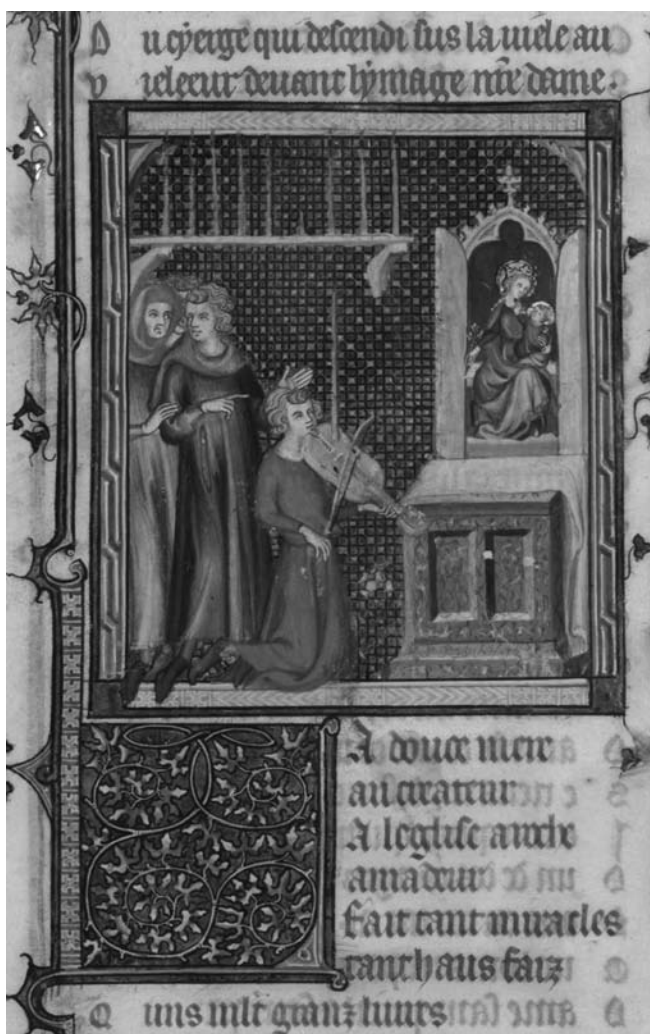 Du cyerge qui descendi sus la uiele au
vieleeur deuant lymage nr̃e dame.
A douce mere
au creatour
A leglise a roche
amadour
Fait tant miracles
tant haus faiz
Q uns mlt granz liures